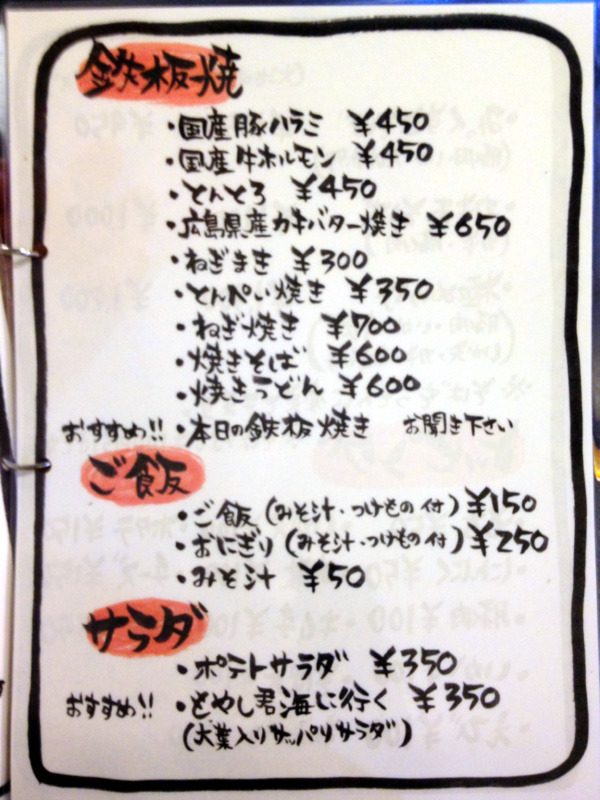 鉄板焼
・国産豚ハラミ ¥450
・国産牛ホルモン ¥450
・とんとろ ¥450
・広島県産カキバター焼き ¥650
・ねぎまき ¥300
・とんぺい焼き ¥350
・ねぎ焼き ¥700
・焼きそば ¥600
・焼きうどん ¥600
おすすめ!! ・本日の鉄板焼き お聞き下さい
ご飯
・ご飯(みそ汁・つけもの付) ¥150
・おにぎり(みそ汁・つけもの付) ¥250
・みそ汁 ¥50
サラダ
・ポテトサラダ ¥350
おすすめ!! ・もやし君海に行く ¥350
(大葉入りサッパリサラダ)